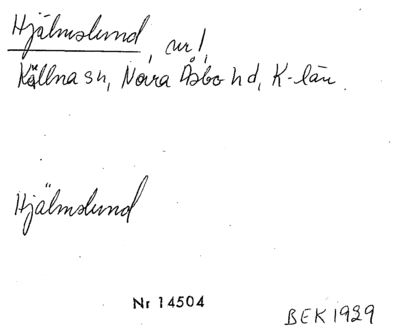 Hjälmslund, nr 1,
Källna sn, Norra Åsbo hd, K-län.
Hjälmslund
Nr 14504
BEK 1929